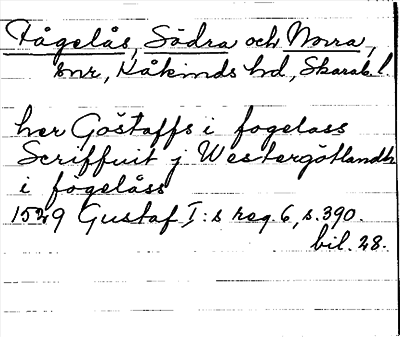 Fågelås, Södra och Norra,
snr, Kåkinds hd, Skarab. l.
her Göstaffs i fogelass
Scriffuit j Westergötlandh
i fogelåss
1529 Gustaf I:s reg. 6, s. 390.
bil. 28.